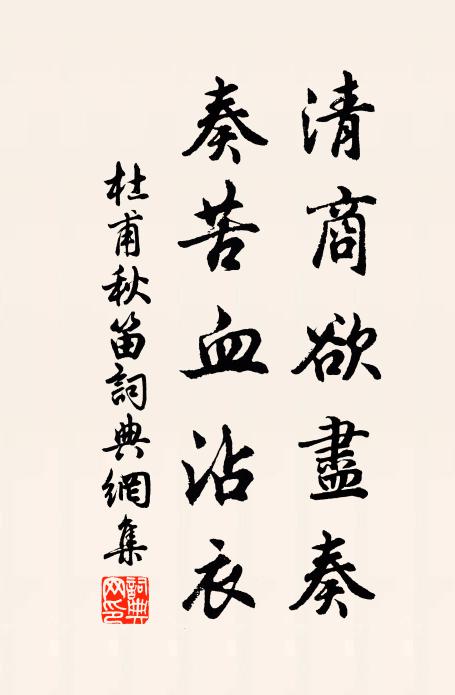 清商欲盡奏
奏苦血沾衣
杜甫秋笛詞典網集
詞典網印